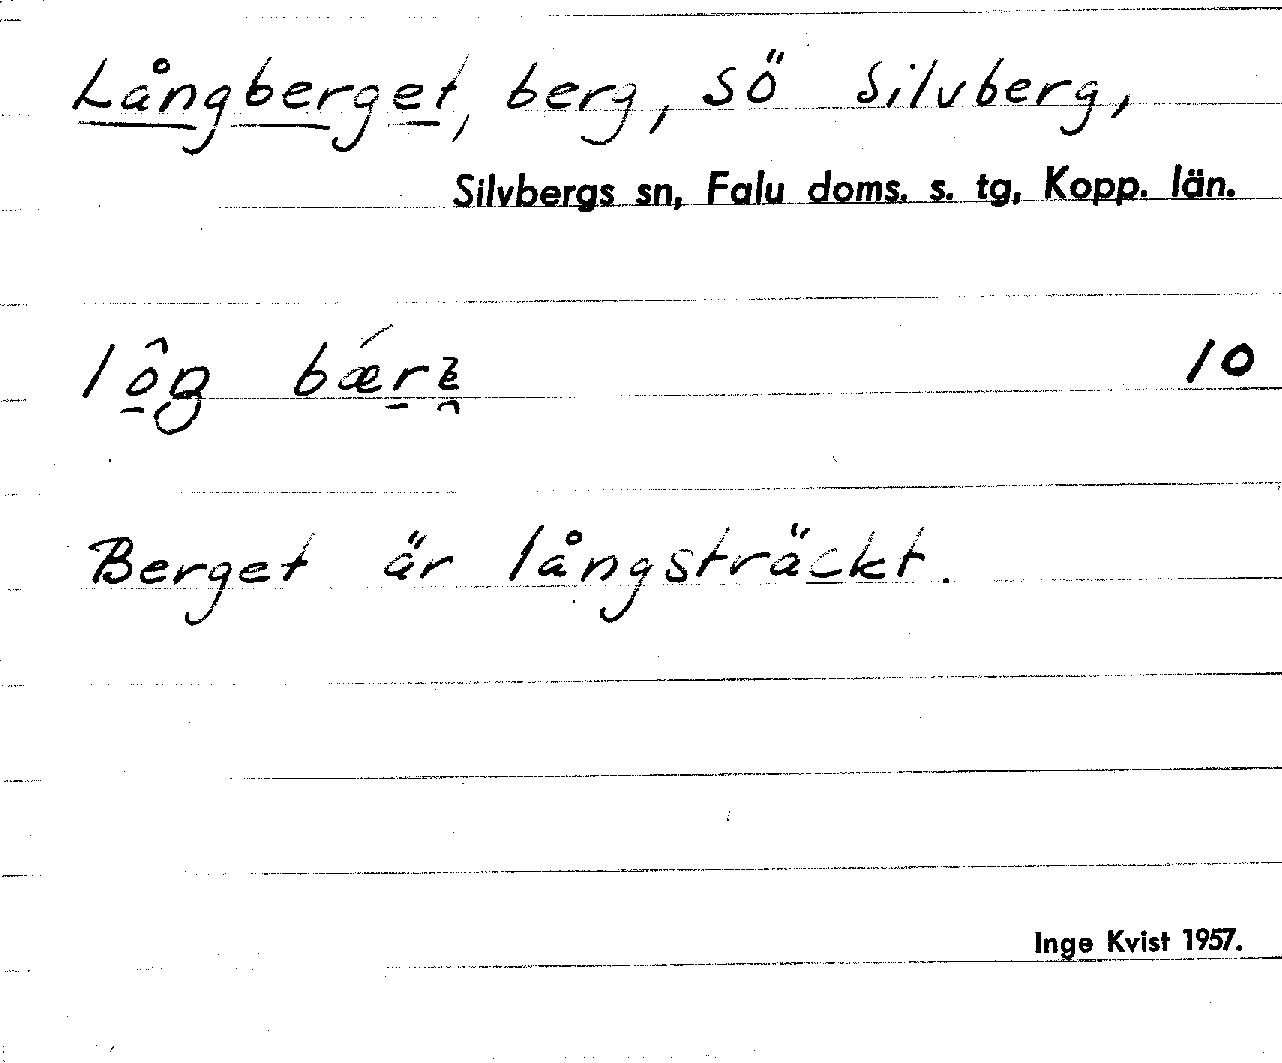 Långberget, berg, SÖ Silvberg,
Silvbergs sn, Falu doms. s. tg, Kopp. län.
10
Berget är långsträckt.
Inge Kvist 1957.